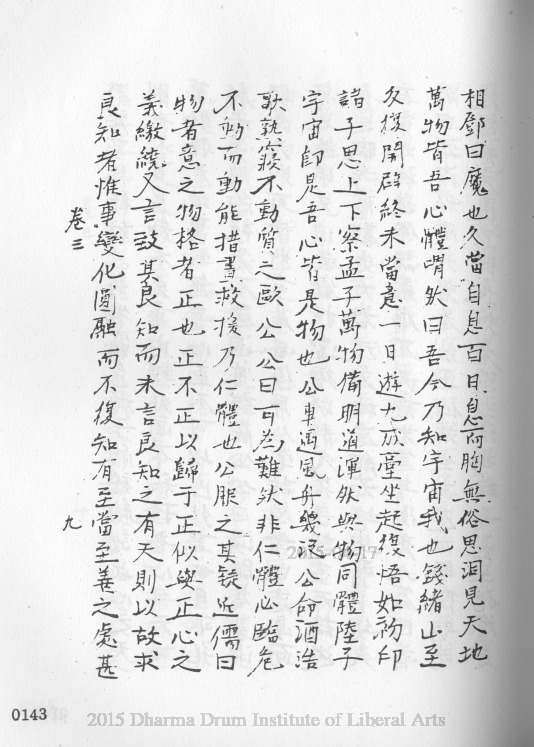 相鄧曰魔也久當自息百日息而胸無俗思洞見天地
萬物皆吾心體喟然曰吾今乃知宇宙我也錢緒山至
久復開闢終未當意一日遊九成臺坐起復悟如初印
諸子思上下察孟子萬物備明道渾然與物同體陸子
宇宙即是吾心皆是物也公車遇風舟幾溺公命酒浩
歌熟寢不動質之歐公公曰可為難然非仁體必臨危
不動而動能措畫救援乃仁體也公服之其錢近儒曰
物者意之物格者正也正不正以歸于正似與正心之
義繳繞又言致其良知而未言良知之有天則以故求
良知者惟事變化圓融而不復知有至當至善之處甚
卷三
九
0143
2015 Dharma Drum Institute of Liberal Arts